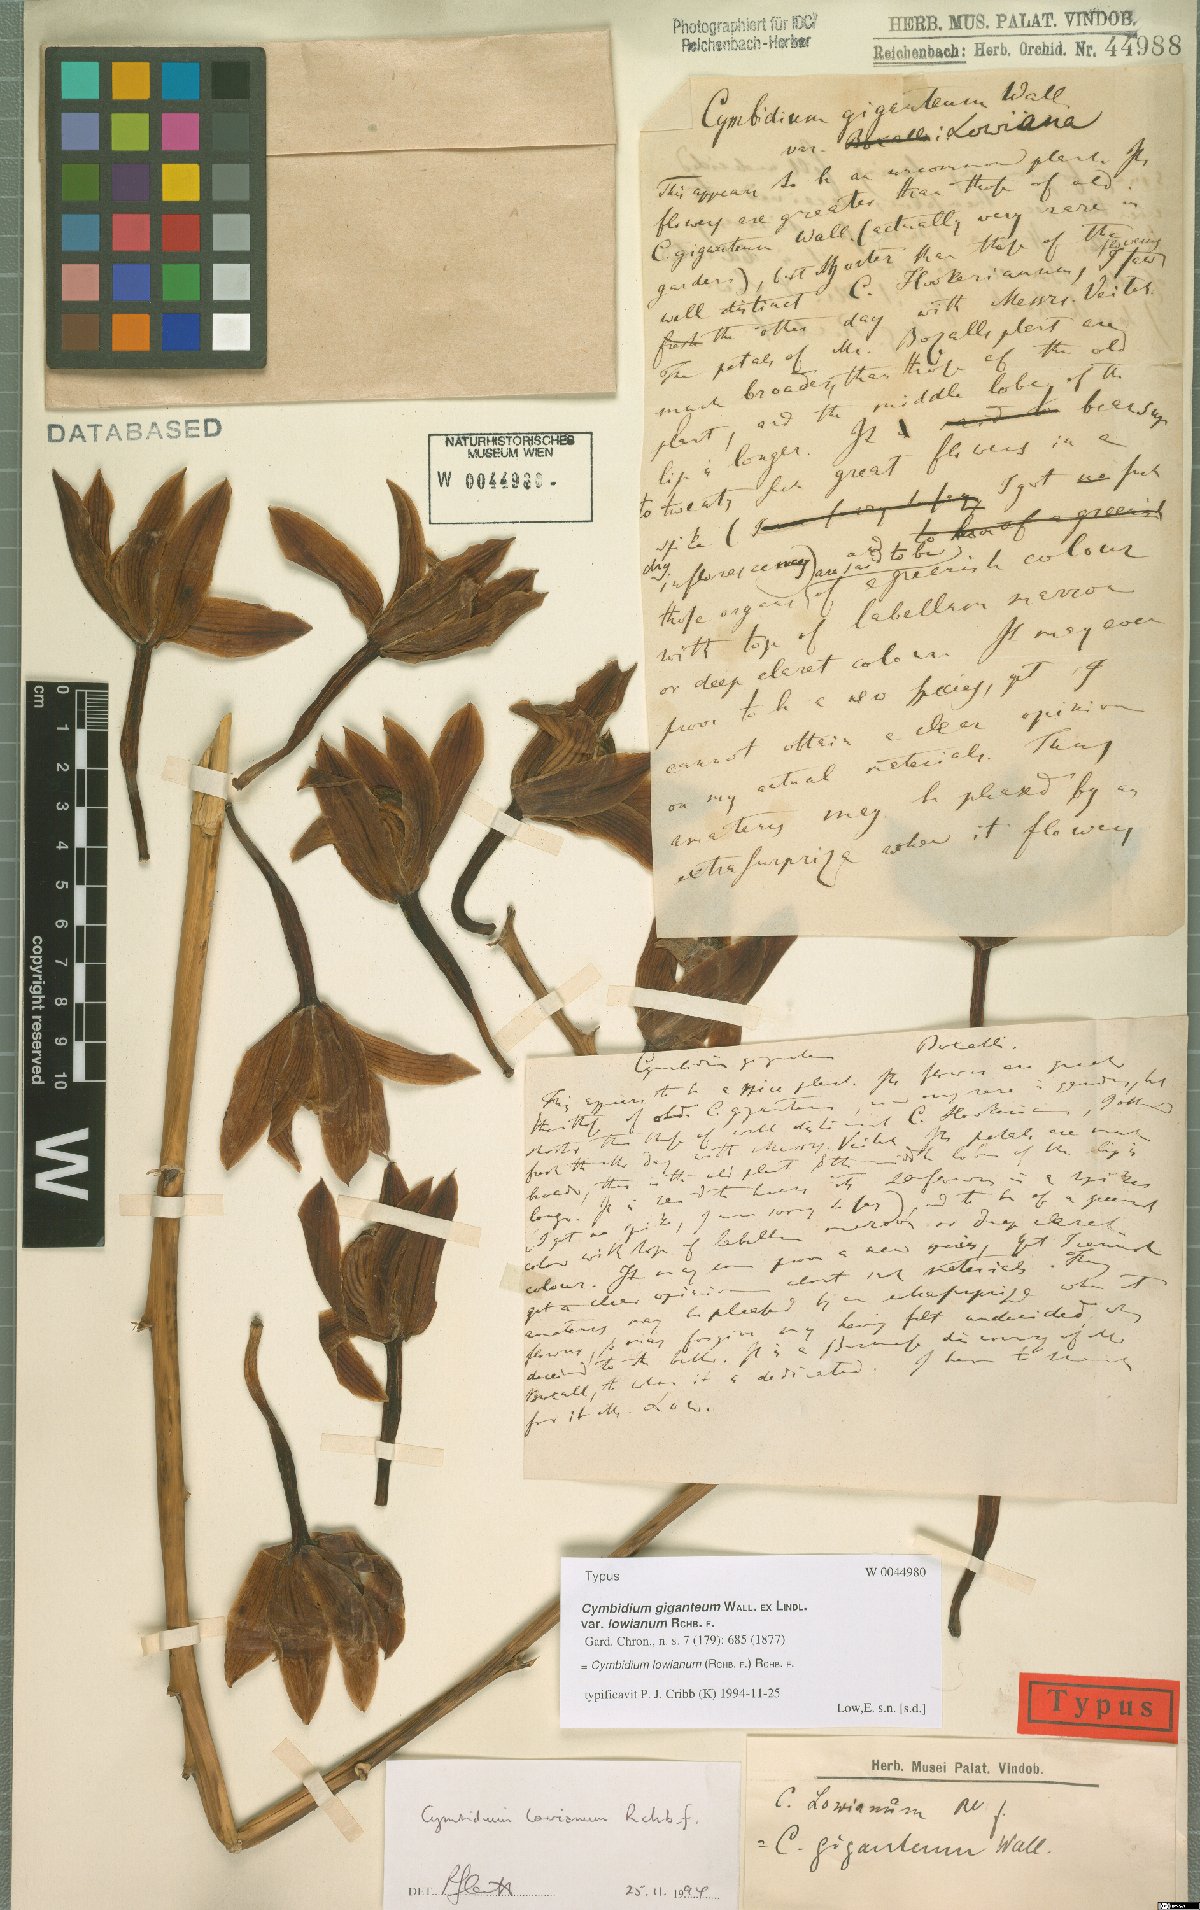 Photographiert für IDC
Reichenbach-Herbar
HERB. MUS. PALAT. VINDOB.
Reichenbach: Herb. Orchid. Nr. 44988
DATABASED
NATURHISTORISCHES
MUSEUM WIEN
W 0044980
cm
0
1
2
3
4
5
6
7
8
9
10
copyright reserved
W
Cymbidium giganteum Wall
var. Lowiana
This appears to be an uncommon plant. Its
flowers are greater than those of old
C. giganteum Wall. (actually very rare in
gardens), but shorter than those of the
well distinct C. Hookerianum, flowering I saw
fresh the other day with Messrs. Veitch.
The petals of Mr. Boxalls plant are
much broader, than those of the old
plant, and the middle lobe of the
lip is longer. It bears up
to twenty such great flowers in a
spike ( I got no such
dry inflorescence) and to be
those organs of a greenish colour
with top of labellum marroon
or deep claret colour. It may even
prove to be a new species, yet I
cannot obtain a clear opinion
on my actual materials. Thus
amateurs may be pleased by an
extra surprize when it flowers
Cymbidium giganteum Boxalli.
This appears to be a nice plant. Its flowers are greater
than those of old C. giganteum, now very rare in gardens, but
shorter than those of well distinct C. Hookerianum, I obtained
fresh the other day with Messrs. Veitch. Its petals are much
broader, than in the old plant & the middle lobe of the lip is
longer. It is said to have its 20 flowers in a spike
I got no spike, I am sorry to say), and to be of a greenish
color with top of labellum marroon or deep claret
colour. It may even prove a new species, yet I cannot
get a clear opinion about such materials. Thus
amateurs may be pleased by an extra surprize when it
flowers, & may forgive my having felt undecided
It is a Burmese discovery of Mr
Boxall, to whom it is dedicated. I have to thank
for it Mr. Low.
Typus
W 0044980
Cymbidium giganteum WALL. EX LINDL.
var. lowianum RCHB. F.
Gard. Chron., n. s. 7 (179): 685 (1877)
= Cymbidium lowianum (RCHB. F.) RCHB. F.
typificavit P. J. Cribb (K) 1994-11-25
Low,E. s.n. [s.d.]
Typus
Cymbidium lowianum Rchb.f.
DET.
25.11.1994
Herb. Musei Palat. Vindob.
C. Lowianum Rf.
= C. giganteum Wall.